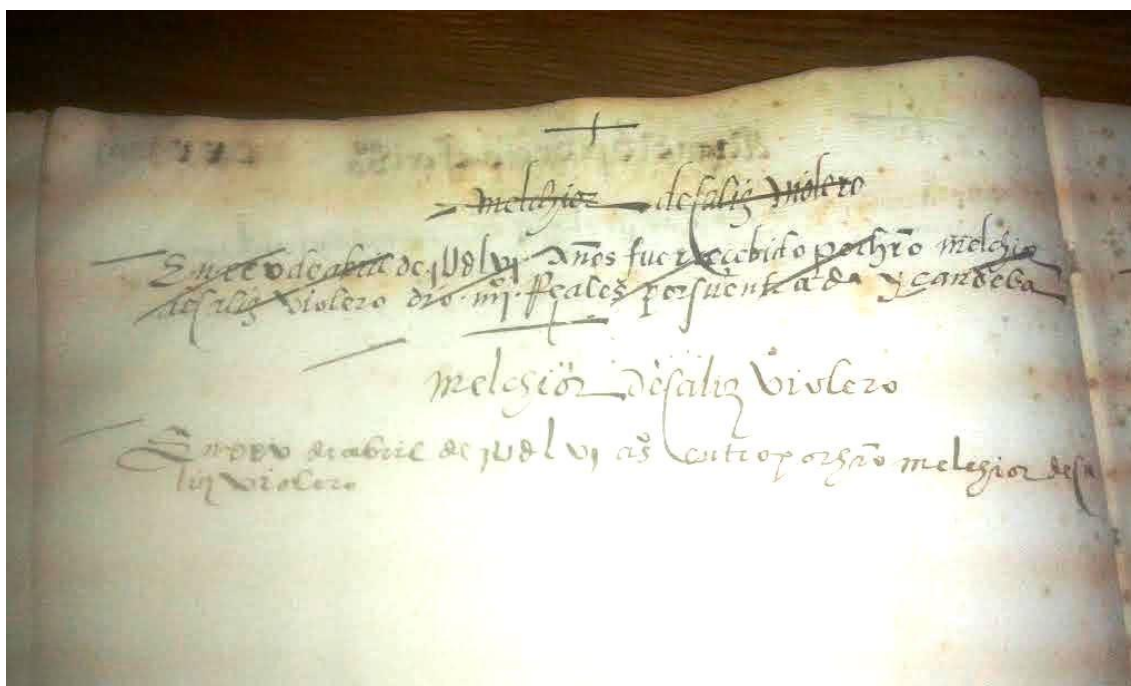 melchior desaliz violero
En xxv de abril de jUdlvj Años fue rrecebido por hr̃o melchior
desaliz violero dio iiijº Reales por su entrada y candela
melchior desaliz violero
En xxv de abril de jUdlvj as̃ entro por hr̃o melchior desa
liz violero